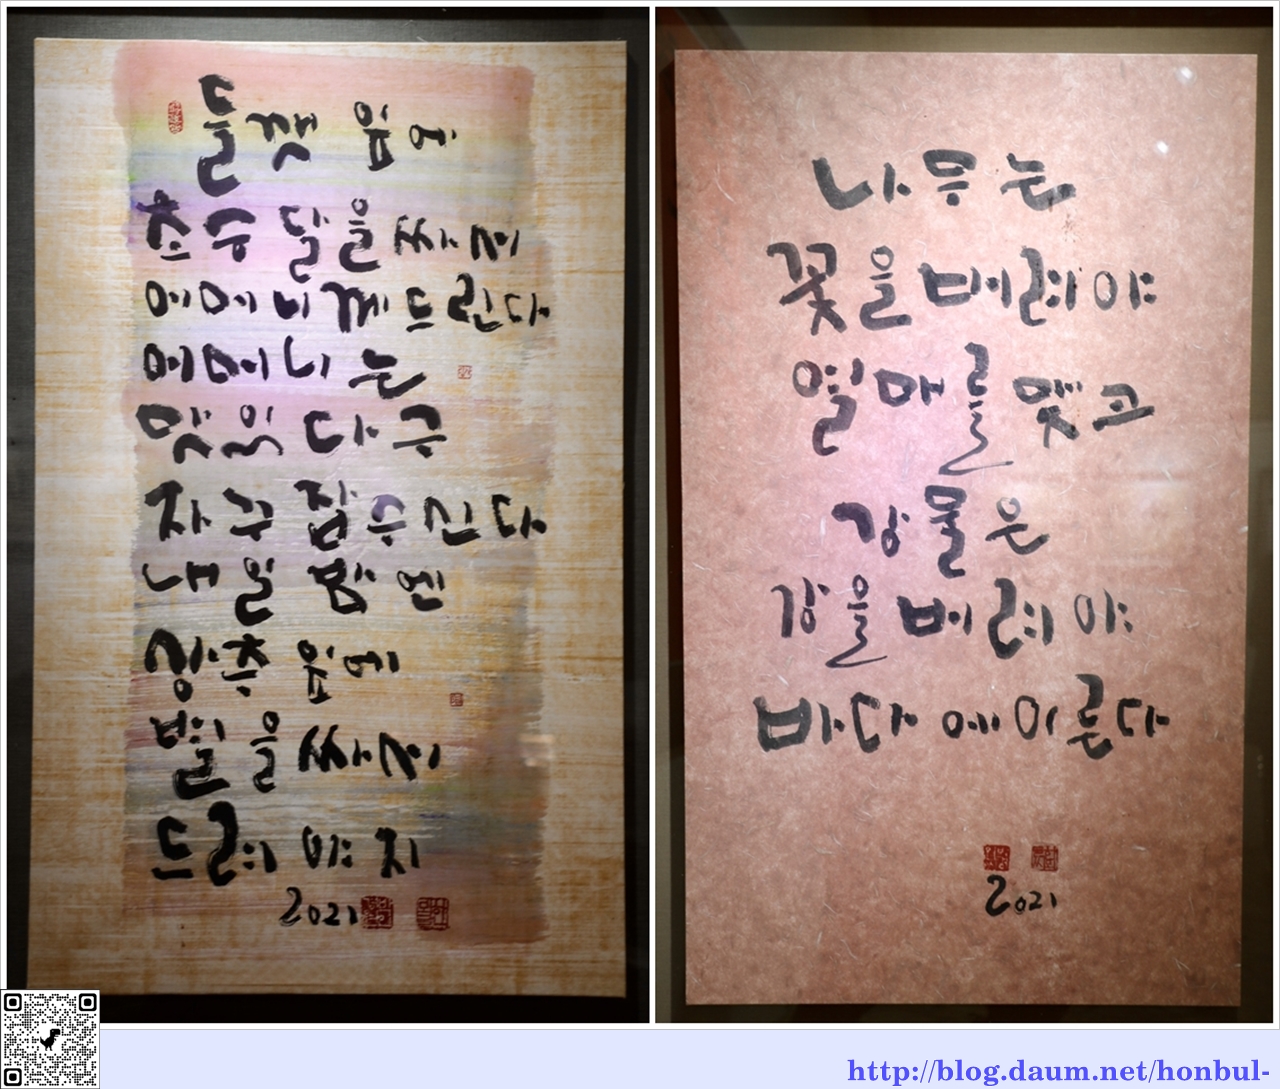 들깻잎에
초승달을 싸서
어머니께 드린다
어머니는
맛있다고
자꾸 잡수신다
내일 밤엔
상추잎에
별을 싸서
드려야지
2021
나무는
꽃을 버려야
열매를 맺고
강물은
강을 버려야
바다에 이른다
2021
http://blog.daum.net/honbul-